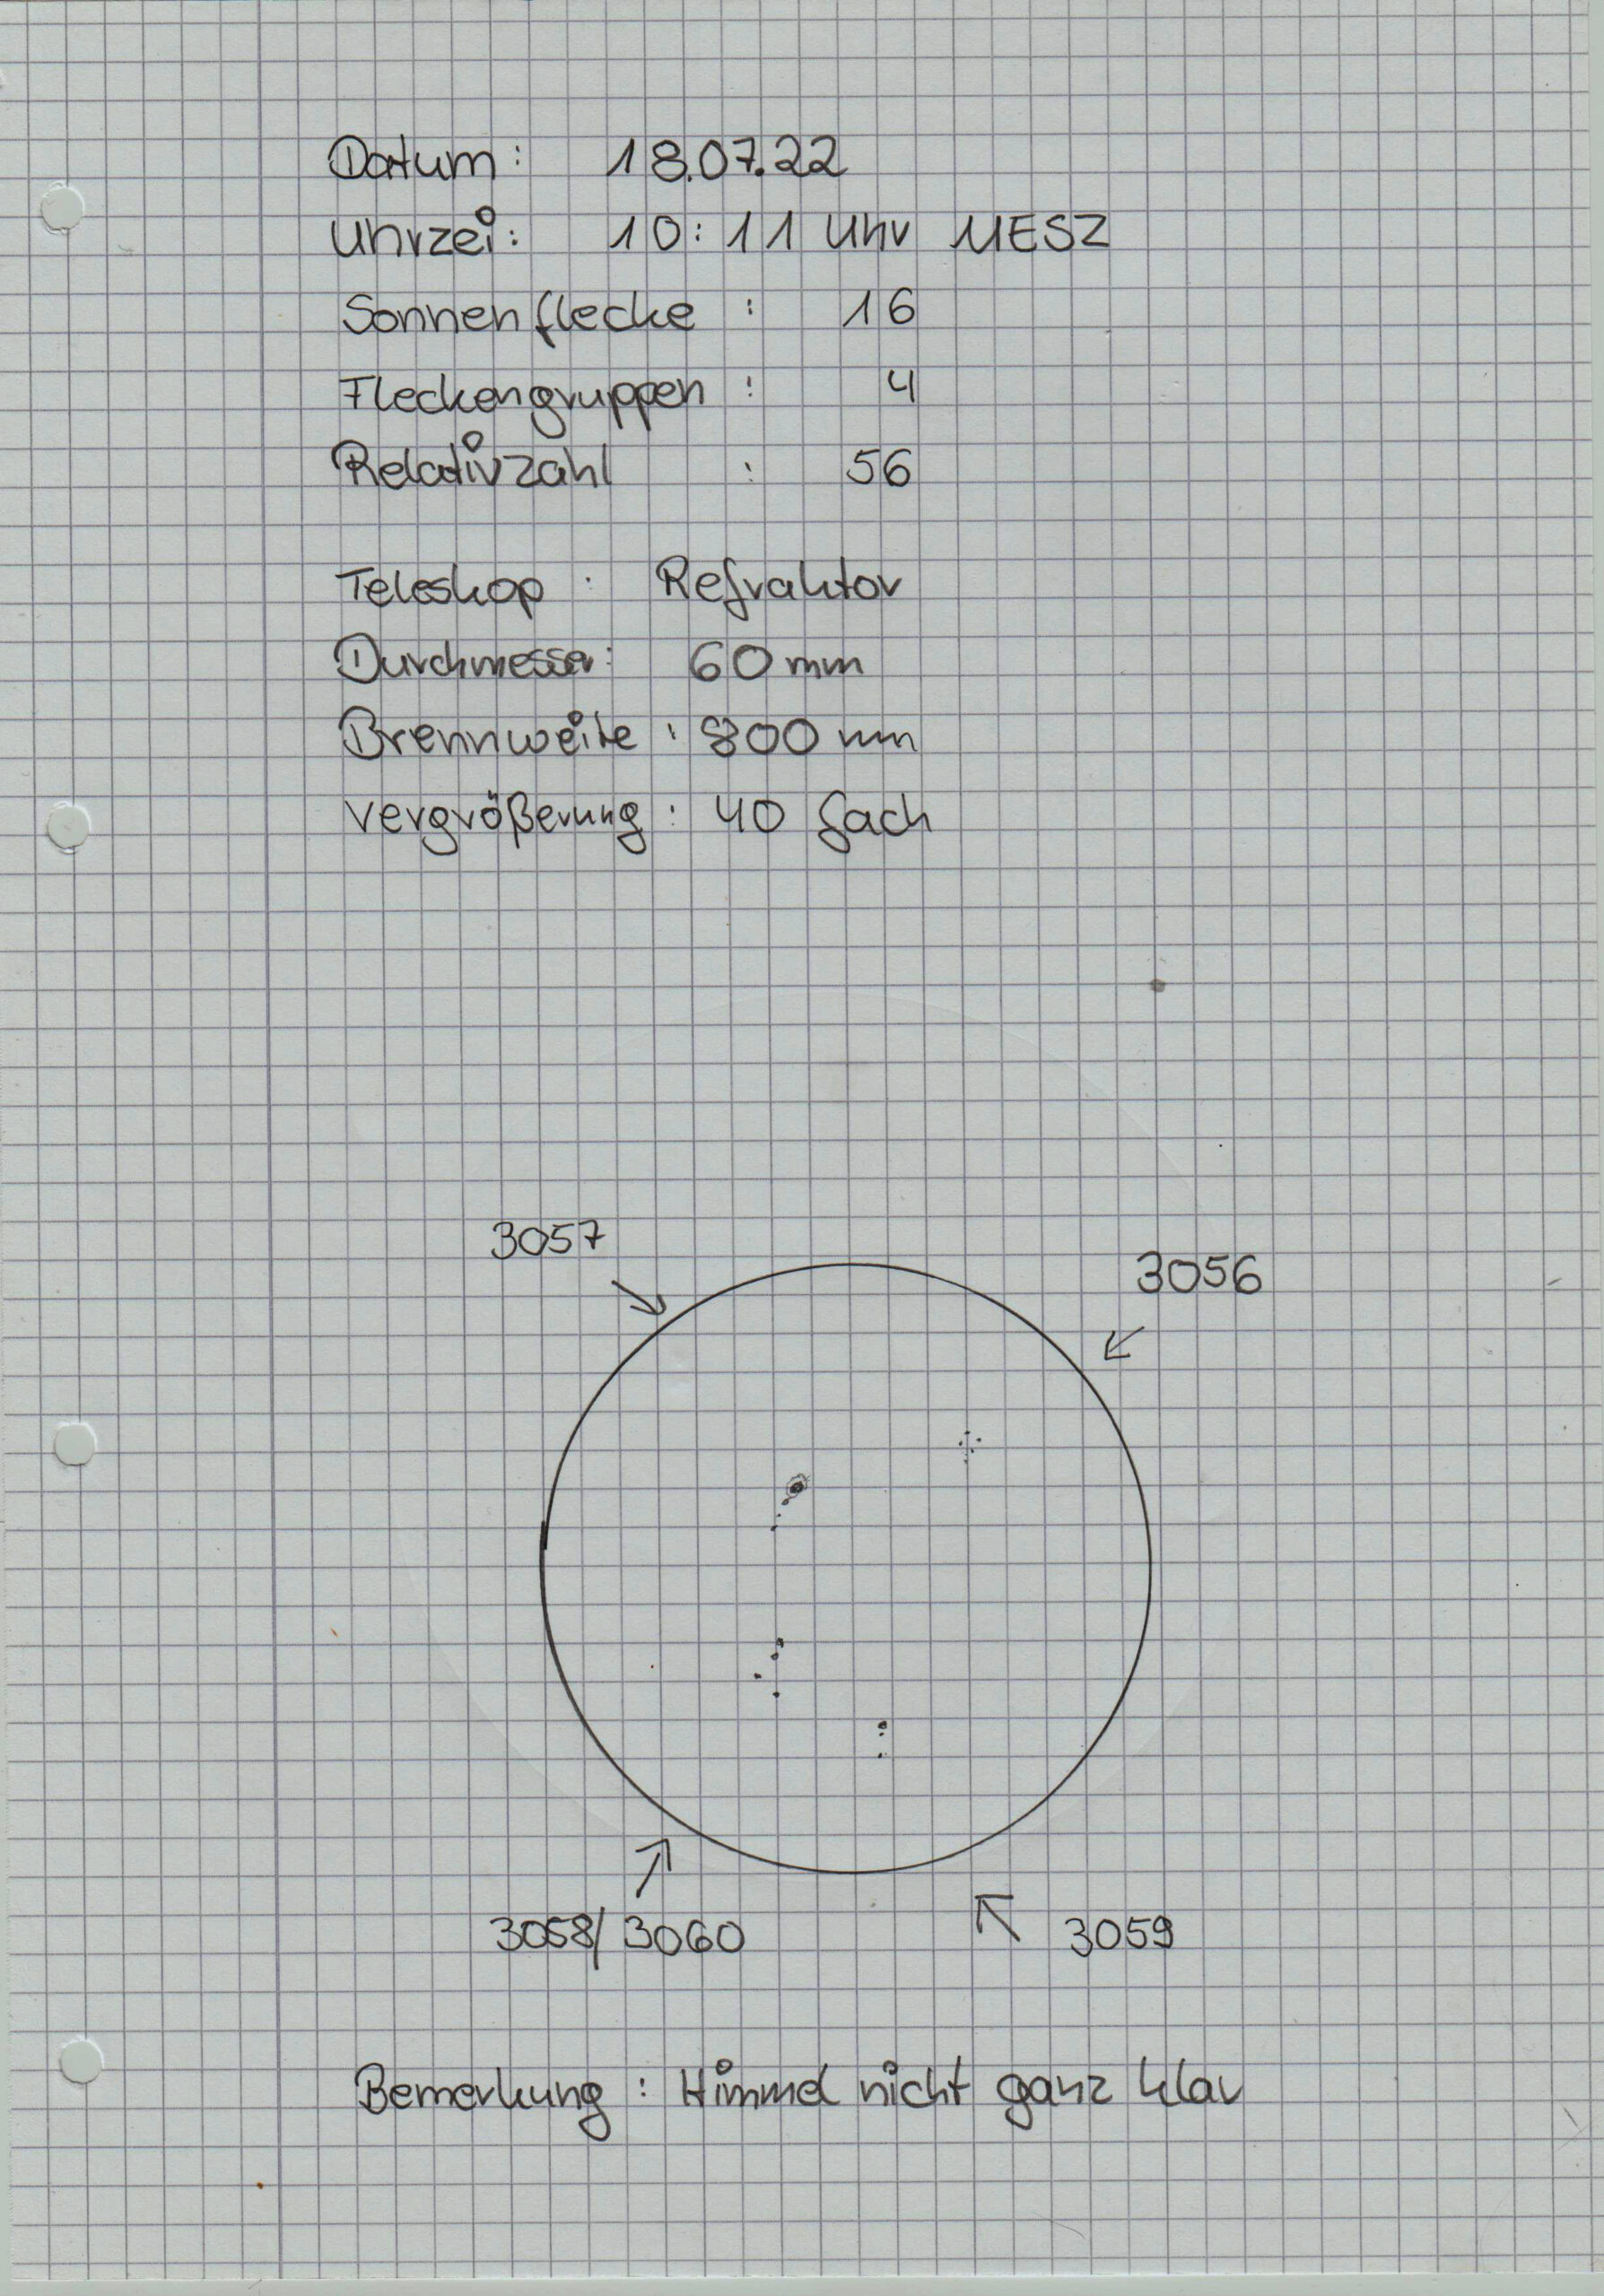 Datum: 18.07.22
Uhrzei: 10:11 Uhr MESZ
Sonnenflecke : 16
Fleckengruppen : 4
Relativzahl : 56
Teleskop : Refraktor
Durchmesser: 60 mm
Brennweite : 800 mm
Vergrößerung : 40 fach
3057
3056
3058/ 3060
3059
Bemerkung : Himmel nicht ganz klar